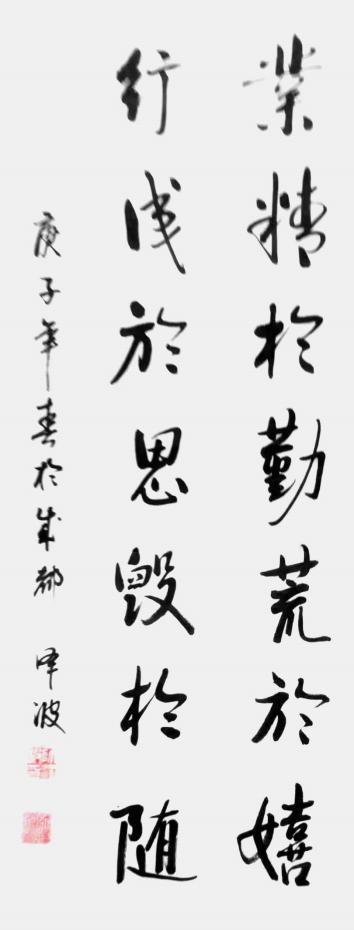 業精於勤荒於嬉
行成於思毀於随
庚子年春於成都 泽波